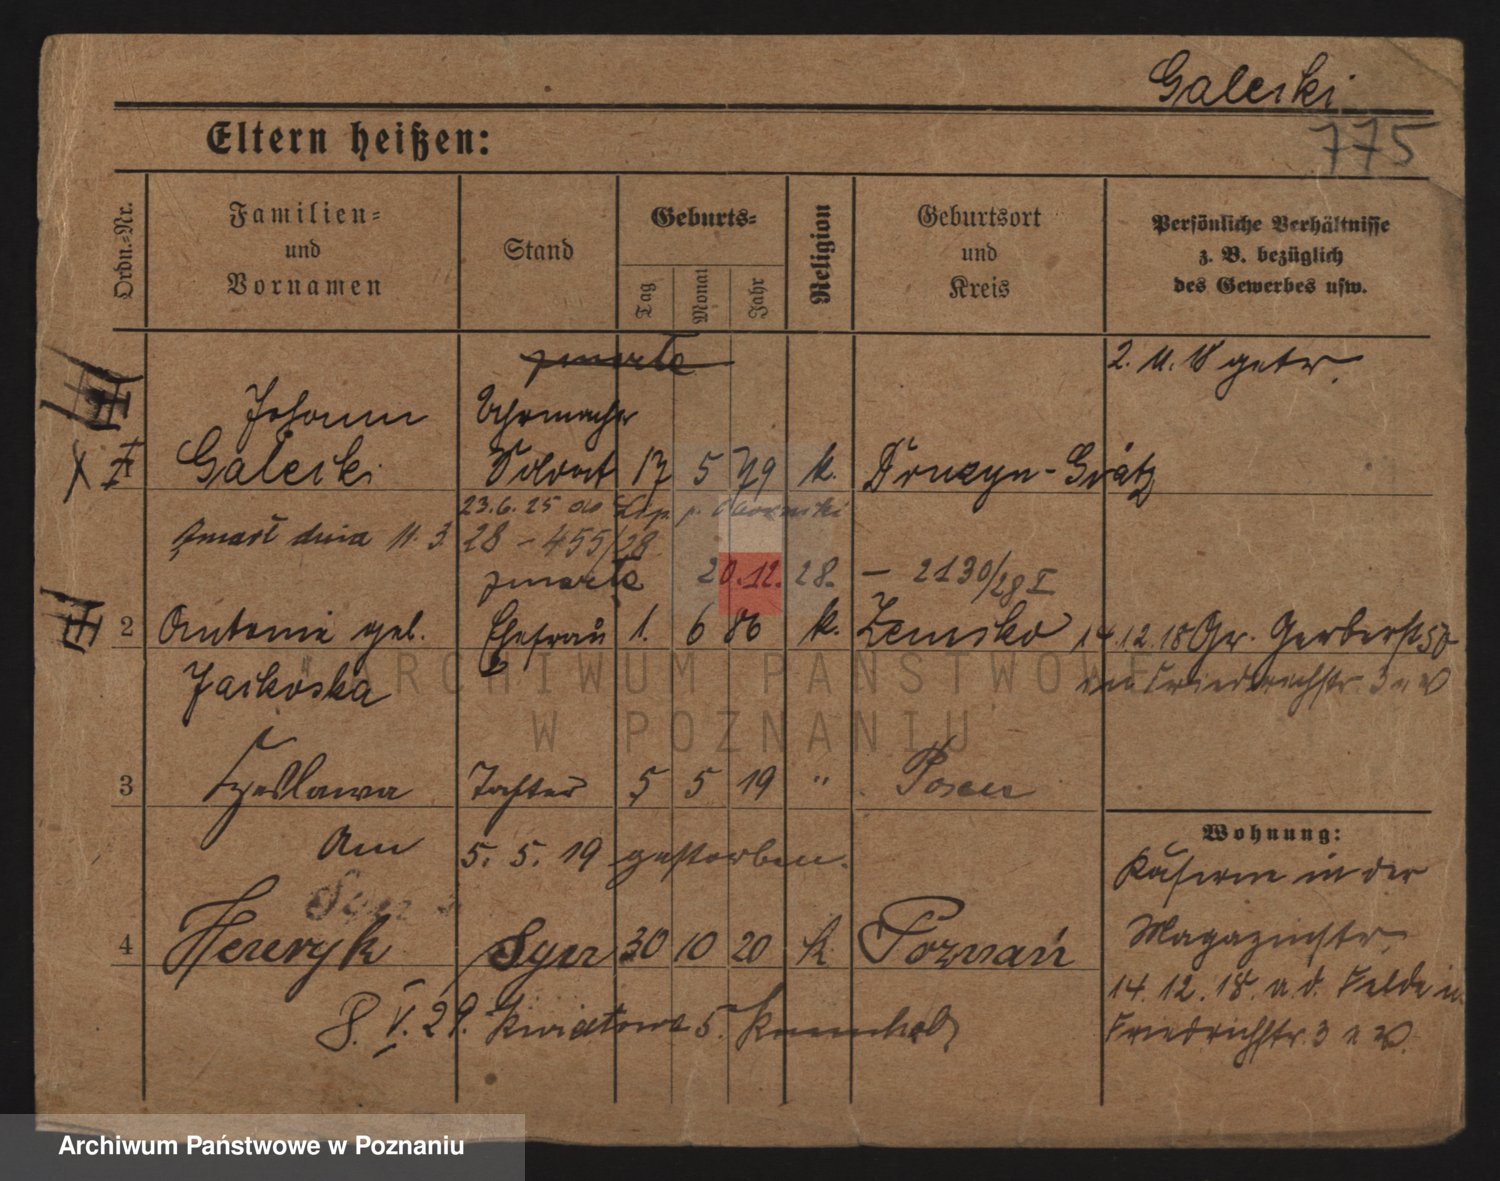 Galecki
775
Eltern heißen:
Ordn.-Nr.
Familien-
und
Vornamen
Stand
Geburts-
Tag
Monat
Jahr
Religion
Geburtsort
und
Kreis
Persönliche Verhältnisse
z. B. bezüglich
des Gewerbes usw.
zmarła
2. 11. 18 getr.
Johann Uhrmacher
Galecki Soldat 17 5 79 k. Druzyn-Grätz
23.6.25
zmarł dnia 11. 3 28 - 455/28
zmarła 20.12.28. - 2130/28 I
2 Antonie geb. Ehefrau 1. 6 86 k. Zemsko 14.12.18 Gr. Gerberst 50
Jaikóska Friedrichstr. 3 e W
ARCHIWUM PAŃSTWOWE
W POZNANIU
3 Czeslawa Tochter 5 5 19 " Posen
Am 5. 5. 19 gestorben.
Wohnung:
Kaserne in der
Magazinstr.
14.12.18. a. d. Felde in
Friedrichstr. 3 e W.
4 Henryk Syn 30 10 20 k Poznań
8. V. 29. Kwiatowa 5.
Archiwum Państwowe w Poznaniu